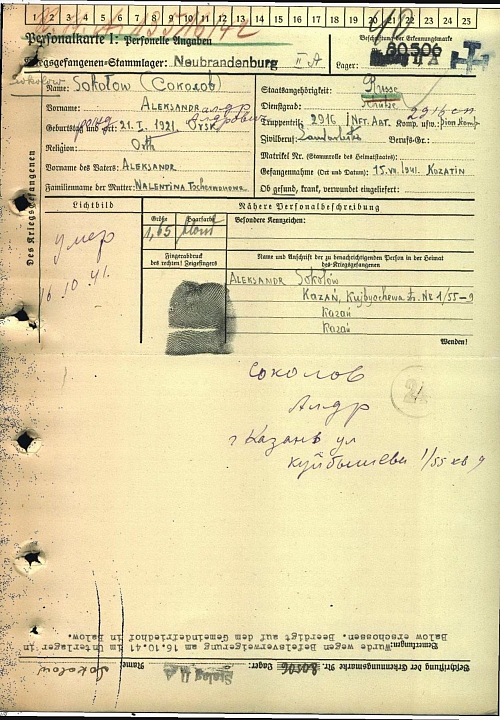 1 2 3 4 5 6 7 8 9 10 11 12 13 14 15 16 17 18 19 20 21 22 23 24 25
Personalkarte I: Personelle Angaben
Kriegsgefangenen-Stammlager: Neubrandenburg II A
Beschriftung der Erkennungsmarke
Nr. 80506
Lager:
Sokolow
Des Kriegsgefangenen
Name: Sokołow (Соколов)
Vorname: ALEKSANDR
Geburtstag und -ort: 21. I. 1921, Orsk
Religion: Orth
Vorname des Vaters: ALEKSANDR
Familienname der Mutter: VALENTINA
Staatsangehörigkeit: Russe
Dienstgrad: Schütze
Truppenteil: 2916 Inft. Abt. Komp. usw.:
Zivilberuf: Berufs-Gr.:
Matrikel Nr. (Stammrolle des Heimatstaates):
Gefangennahme (Ort und Datum): 15. VII. 1941. KOZATIN
Ob gesund, krank, verwundet eingeliefert:
Lichtbild
умер
16.10.41.
Nähere Personalbeschreibung
Größe
1,65
Haarfarbe
blond
Besondere Kennzeichen:
Fingerabdruck
des rechten! Zeigefingers
Name und Anschrift der zu benachrichtigenden Person in der Heimat
des Kriegsgefangenen
ALEKSANDR Sokołów
KAZAŃ, Kujbyschewa st. Nr 1/55-9
Kazań
Kazań
Wenden!
Соколов
Алдр
г Казань ул
куйбышева 1/55 кв 9
Beschriftung der Erkennungsmarke Nr. 80506 Lager: Stalag II A Name: Sokolow
Bemerkungen: Wurde wegen Befelsverweigerung am 16.10.41 im Unterlager in
Balow erschossen. Beerdigt auf dem Gemeindefriedhof in Balow.